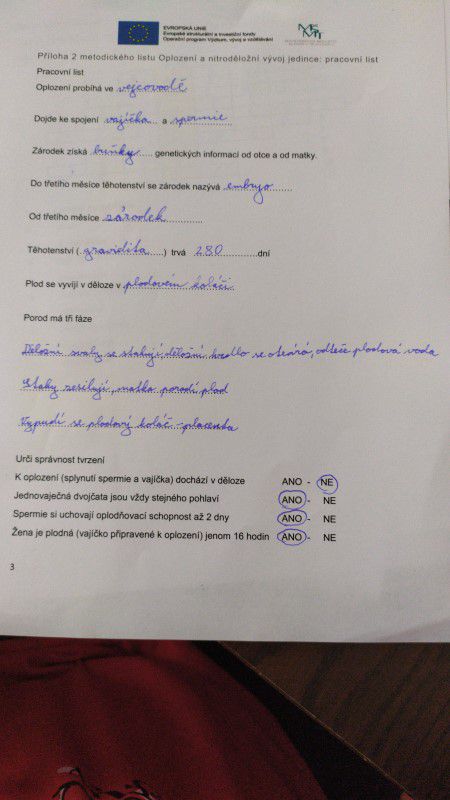 EVROPSKÁ UNIE
Evropské strukturální a investiční fondy
Operační program Výzkum, vývoj a vzdělávání
Příloha 2 metodického listu Oplození a nitroděložní vývoj jedince: pracovní list
Pracovní list
Oplození probíhá ve vejcovodě
Dojde ke spojení vajíčka a spermie
Zárodek získá buňky genetických informací od otce a od matky.
Do třetího měsíce těhotenství se zárodek nazývá embryo
Od třetího měsíce zárodek
Těhotenství (gravidita) trvá 280 dní
Plod se vyvíjí v děloze v plodovém koláči
Porod má tři fáze
Děložní svaly se stahují, děložní hrdlo se otvírá, odteče plodová voda
Stahy zesilují, matka porodí plod
Vypudí se plodový koláč - placenta
Urči správnost tvrzení
K oplození (splynutí spermie a vajíčka) dochází v děloze ANO - NE
Jednovaječná dvojčata jsou vždy stejného pohlaví ANO - NE
Spermie si uchovají oplodňovací schopnost až 2 dny ANO - NE
Žena je plodná (vajíčko připravené k oplození) jenom 16 hodin ANO - NE
3